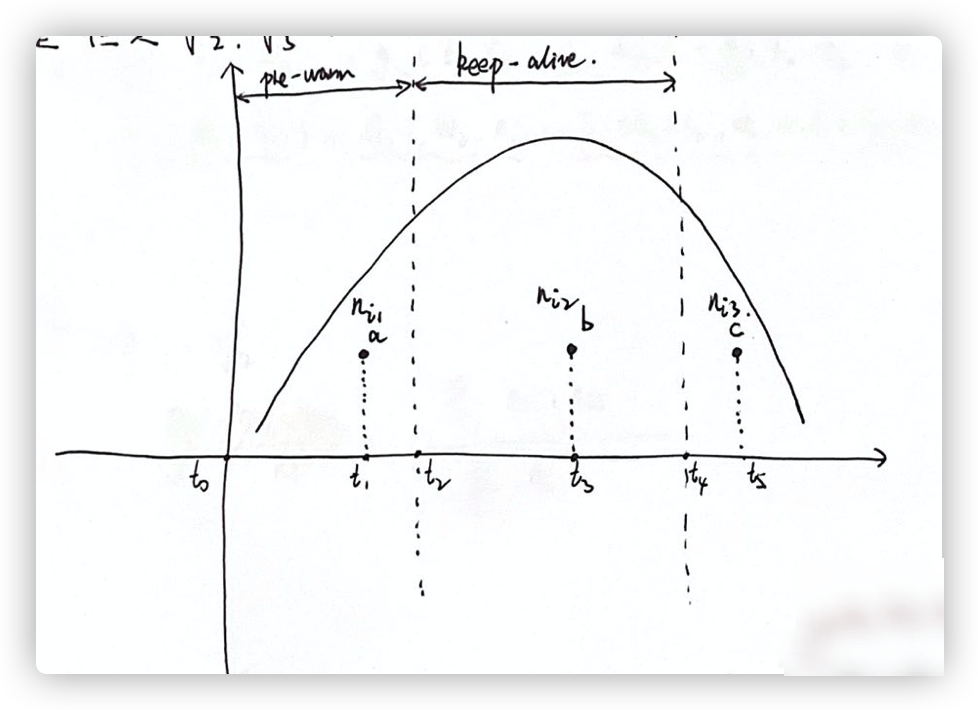 pre-warm
keep-alive.
n_i1
a
n_i2
b
n_i3.
c
t_0
t_1
t_2
t_3
t_4
t_5